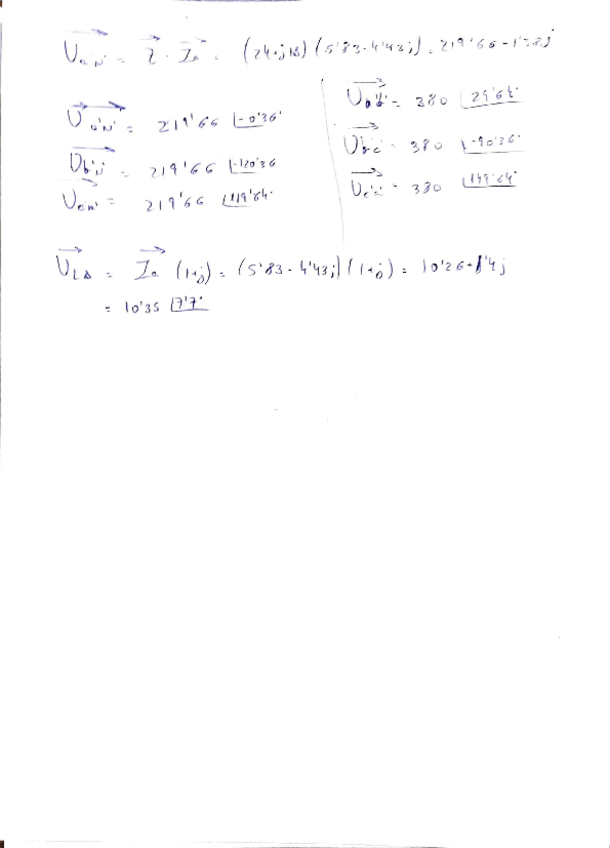 U⃗a'N' = Z⃗ · I⃗a = (24+j18)(5'83-4'43j) = 219'66-1'38j
U⃗a'N' = 219'66 |-0'36°
U⃗b'N' = 219'66 |-120'36
U⃗cN' = 219'66 |119'64°
U⃗a'b' = 380 |29'64°
U⃗b'c' = 380 |-90'36°
U⃗c'a' = 380 |149'64°
U⃗LA = I⃗a (1+j) = (5'83-4'43j)(1+j) = 10'26+1'4j
= 10'35 |7'7°